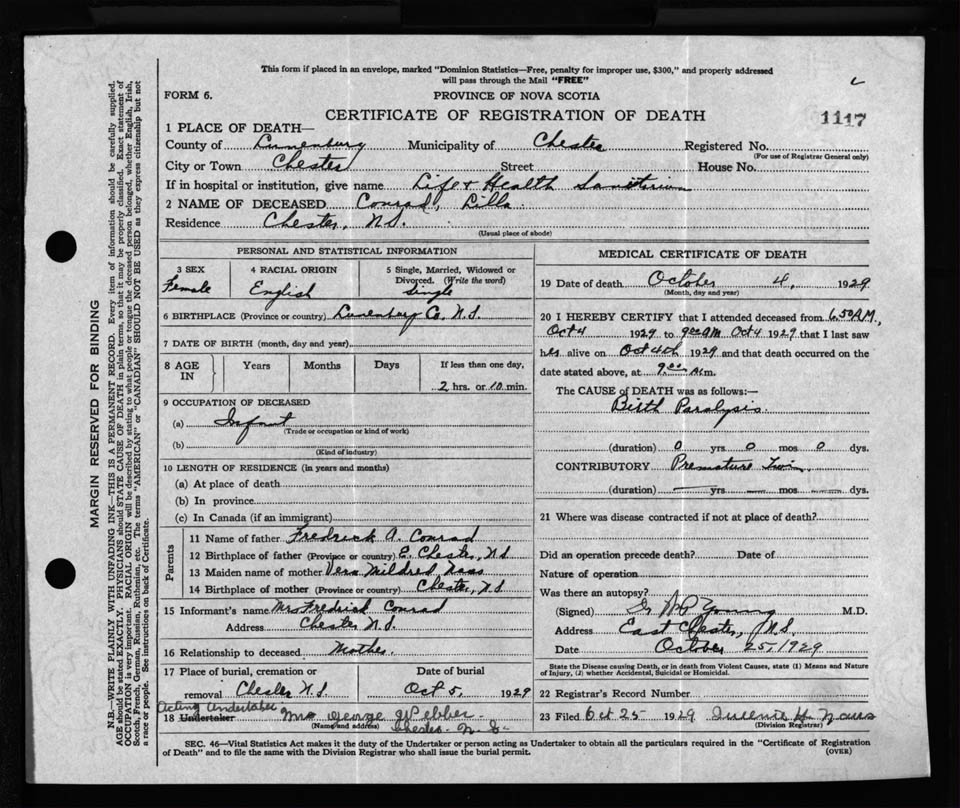 This form if placed in an envelope, marked "Dominion Statistics—Free, penalty for improper use, $300," and properly addressed
will pass through the Mail "FREE"
FORM 6.
PROVINCE OF NOVA SCOTIA
CERTIFICATE OF REGISTRATION OF DEATH
1117
1 PLACE OF DEATH—
County of Lunenburg Municipality of Chester Registered No.
(For use of Registrar General only)
City or Town Chester Street House No.
If in hospital or institution, give name Life & Health Sanitarium
2 NAME OF DECEASED Conrad, Lilla
Residence Chester, N.S.
(Usual place of abode)
PERSONAL AND STATISTICAL INFORMATION
3 SEX
Female
4 RACIAL ORIGIN
English
5 Single, Married, Widowed or
Divorced. (Write the word)
Single
6 BIRTHPLACE (Province or country) Lunenburg Co. N.S.
7 DATE OF BIRTH (month, day and year)
8 AGE
IN
Years
Months
Days
If less than one day,
2 hrs. or 10 min.
9 OCCUPATION OF DECEASED
(a) Infant
(Trade or occupation or kind of work)
(b)
(Kind of industry)
10 LENGTH OF RESIDENCE (in years and months)
(a) At place of death
(b) In province
(c) In Canada (if an immigrant)
Parents
11 Name of father Fredrick A. Conrad
12 Birthplace of father (Province or country) E. Chester, N.S
13 Maiden name of mother Vera Mildred
14 Birthplace of mother (Province or country) Chester, N.S
15 Informant's name Mrs Fredrick Conrad
Address Chester N.S.
16 Relationship to deceased Mother
17 Place of burial, cremation or
removal Chester N.S.
Date of burial
Oct 5, 1929
Acting Undertaker
18 Undertaker Mrs George Webber
(Name and address) Chester N.S.
MEDICAL CERTIFICATE OF DEATH
19 Date of death October 4, 1929
(Month, day and year)
20 I HEREBY CERTIFY that I attended deceased from 6.50 A.M.,
Oct 4 1929 to 9.00 AM Oct 4 1929 that I last saw
her alive on Oct 4th 1929 and that death occurred on the
date stated above, at 9.00 A.m.
The CAUSE OF DEATH was as follows:—
Birth Paralysis.
(duration) 0 yrs 0 mos 0 dys.
CONTRIBUTORY Premature Twin
(duration) — yrs — mos — dys.
21 Where was disease contracted if not at place of death?
Did an operation precede death? Date of
Nature of operation
Was there an autopsy?
(Signed) Young M.D.
Address East Chester, N.S.
Date October 25, 1929
State the Disease causing Death, or in death from Violent Causes, state (1) Means and Nature
of Injury, (2) whether Accidental, Suicidal or Homicidal.
22 Registrar's Record Number
23 Filed Oct 25 1929
(Division Registrar)
SEC. 46—Vital Statistics Act makes it the duty of the Undertaker or person acting as Undertaker to obtain all the particulars required in the "Certificate of Registration
of Death" and to file the same with the Division Registrar who shall issue the burial permit.
(OVER)
MARGIN RESERVED FOR BINDING
N.B.—WRITE PLAINLY WITH UNFADING INK—THIS IS A PERMANENT RECORD. Every item of information should be carefully supplied.
AGE should be stated EXACTLY. PHYSICIANS should STATE CAUSE OF DEATH in plain terms, so that it may be properly classified. Exact statement of
OCCUPATION is very important. RACIAL ORIGIN will be described by stating to what people or tongue the deceased person belonged, whether English, Irish,
Scotch, French, German, Russian, Ruthenian, etc. The terms "AMERICAN" or "CANADIAN" SHOULD NOT BE USED as they express citizenship but not
a race or people. See instructions on back of Certificate.